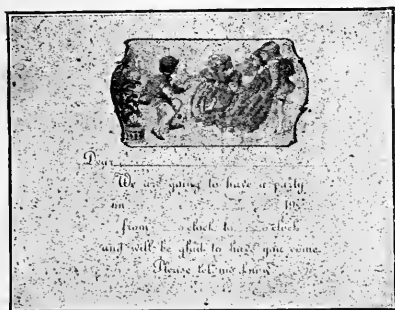 Dear
We are going to have a party
on 19
from o'clock to o'clock
and will be glad to have you come.
Please let me know